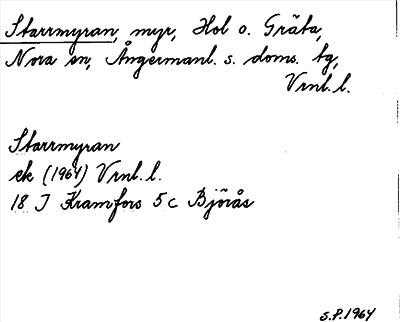 Starrmyran, myr, Hol o. Gräta,
Nora sn, Ångermanl. s. doms. tg,
Vrnl. l.
Starrmyran
ek (1964) Vrnl. l.
18 I Kramfors 5 c Björås
S.P. 1964